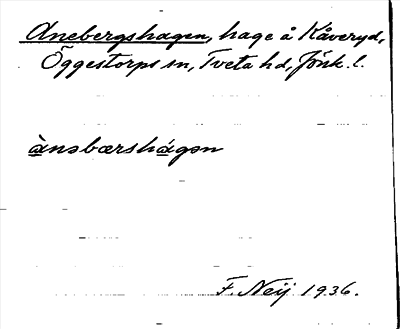 Anebergshagen, hage å Kåveryd,
Öggestorps sn, Tveta hd, Jönk. l.
ànəbærshágən
F. Neij 1936.